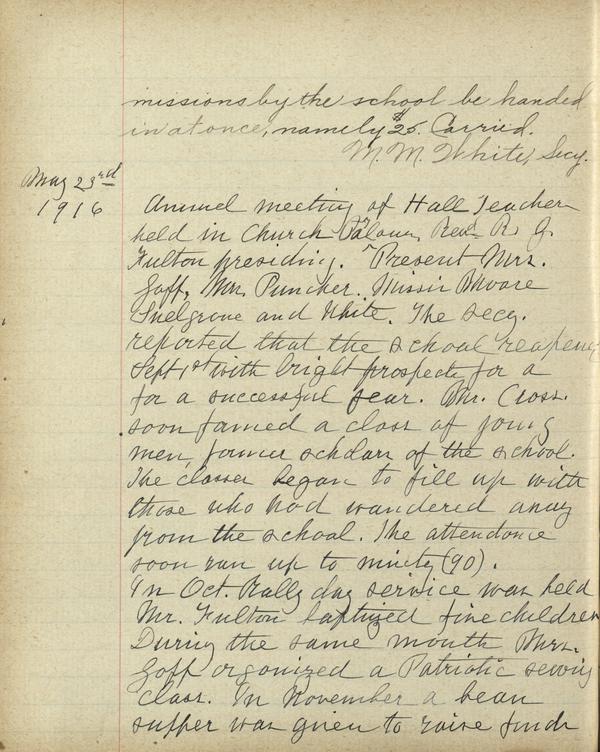 missions by the school be handed
in at once, namely $25. Carried.
M. M. White, Secy.
May 23rd
1916
Annual meeting of Hall Teachers
held in Church Parlour, Rev. R. G.
Fulton presiding. Present Mrs.
Goff, Mrs. Puncher. Misses Moore
Snelgrove and White. The Secy.
reported that the school reopened
Sept 1st with bright prospects for a
for a successful year. Mr. Cross.
soon formed a class of young
men, former scholars of the school.
The classes began to fill up with
those who had wandered away
from the school. The attendance
soon ran up to ninety (90).
In Oct. Rally day service was held
Mr. Fulton baptized five children
During the same month Mrs.
Goff organized a Patriotic sewing
class. In November a bean
supper was given to raise funds